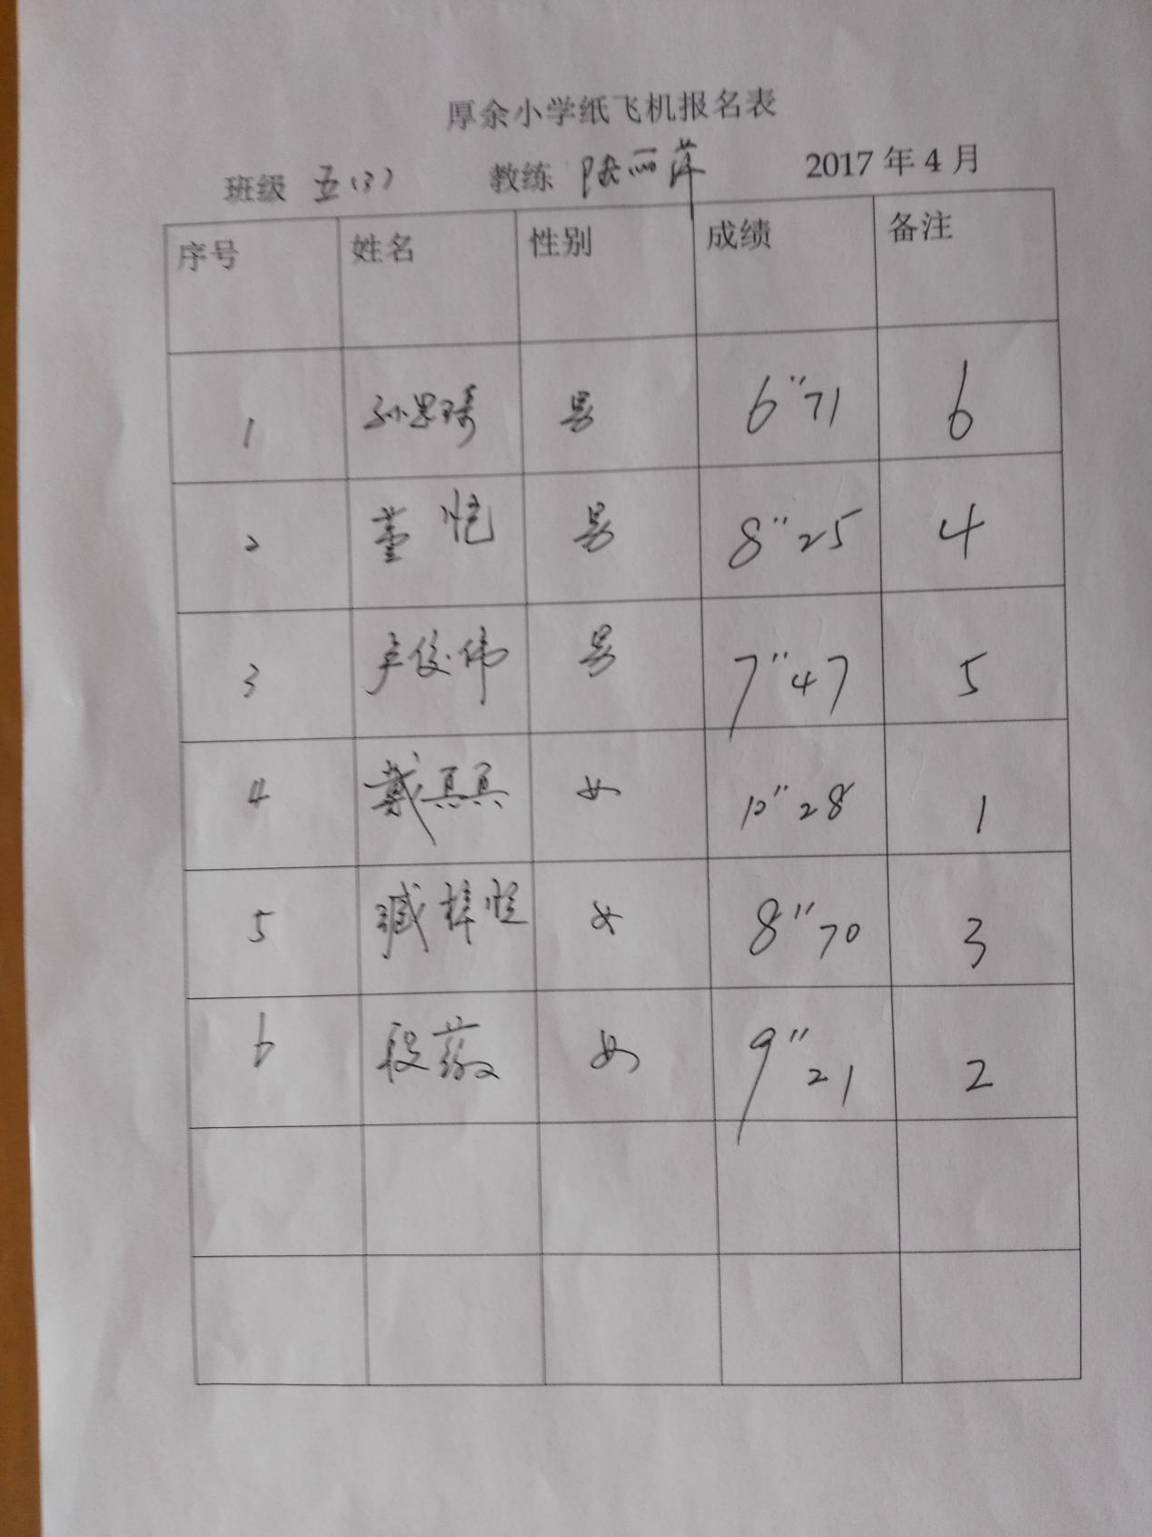 厚余小学纸飞机报名表
班级 五(3) 教练 陆丽萍 2017年4月
序号 姓名 性别 成绩 备注
1 孙思琦 男 6"71 6
2 董恺 男 8"25 4
3 卢俊伟 男 7"47 5
4 戴真真 女 10"28 1
5 臧梓恒 女 8"70 3
6 段 女 9"21 2